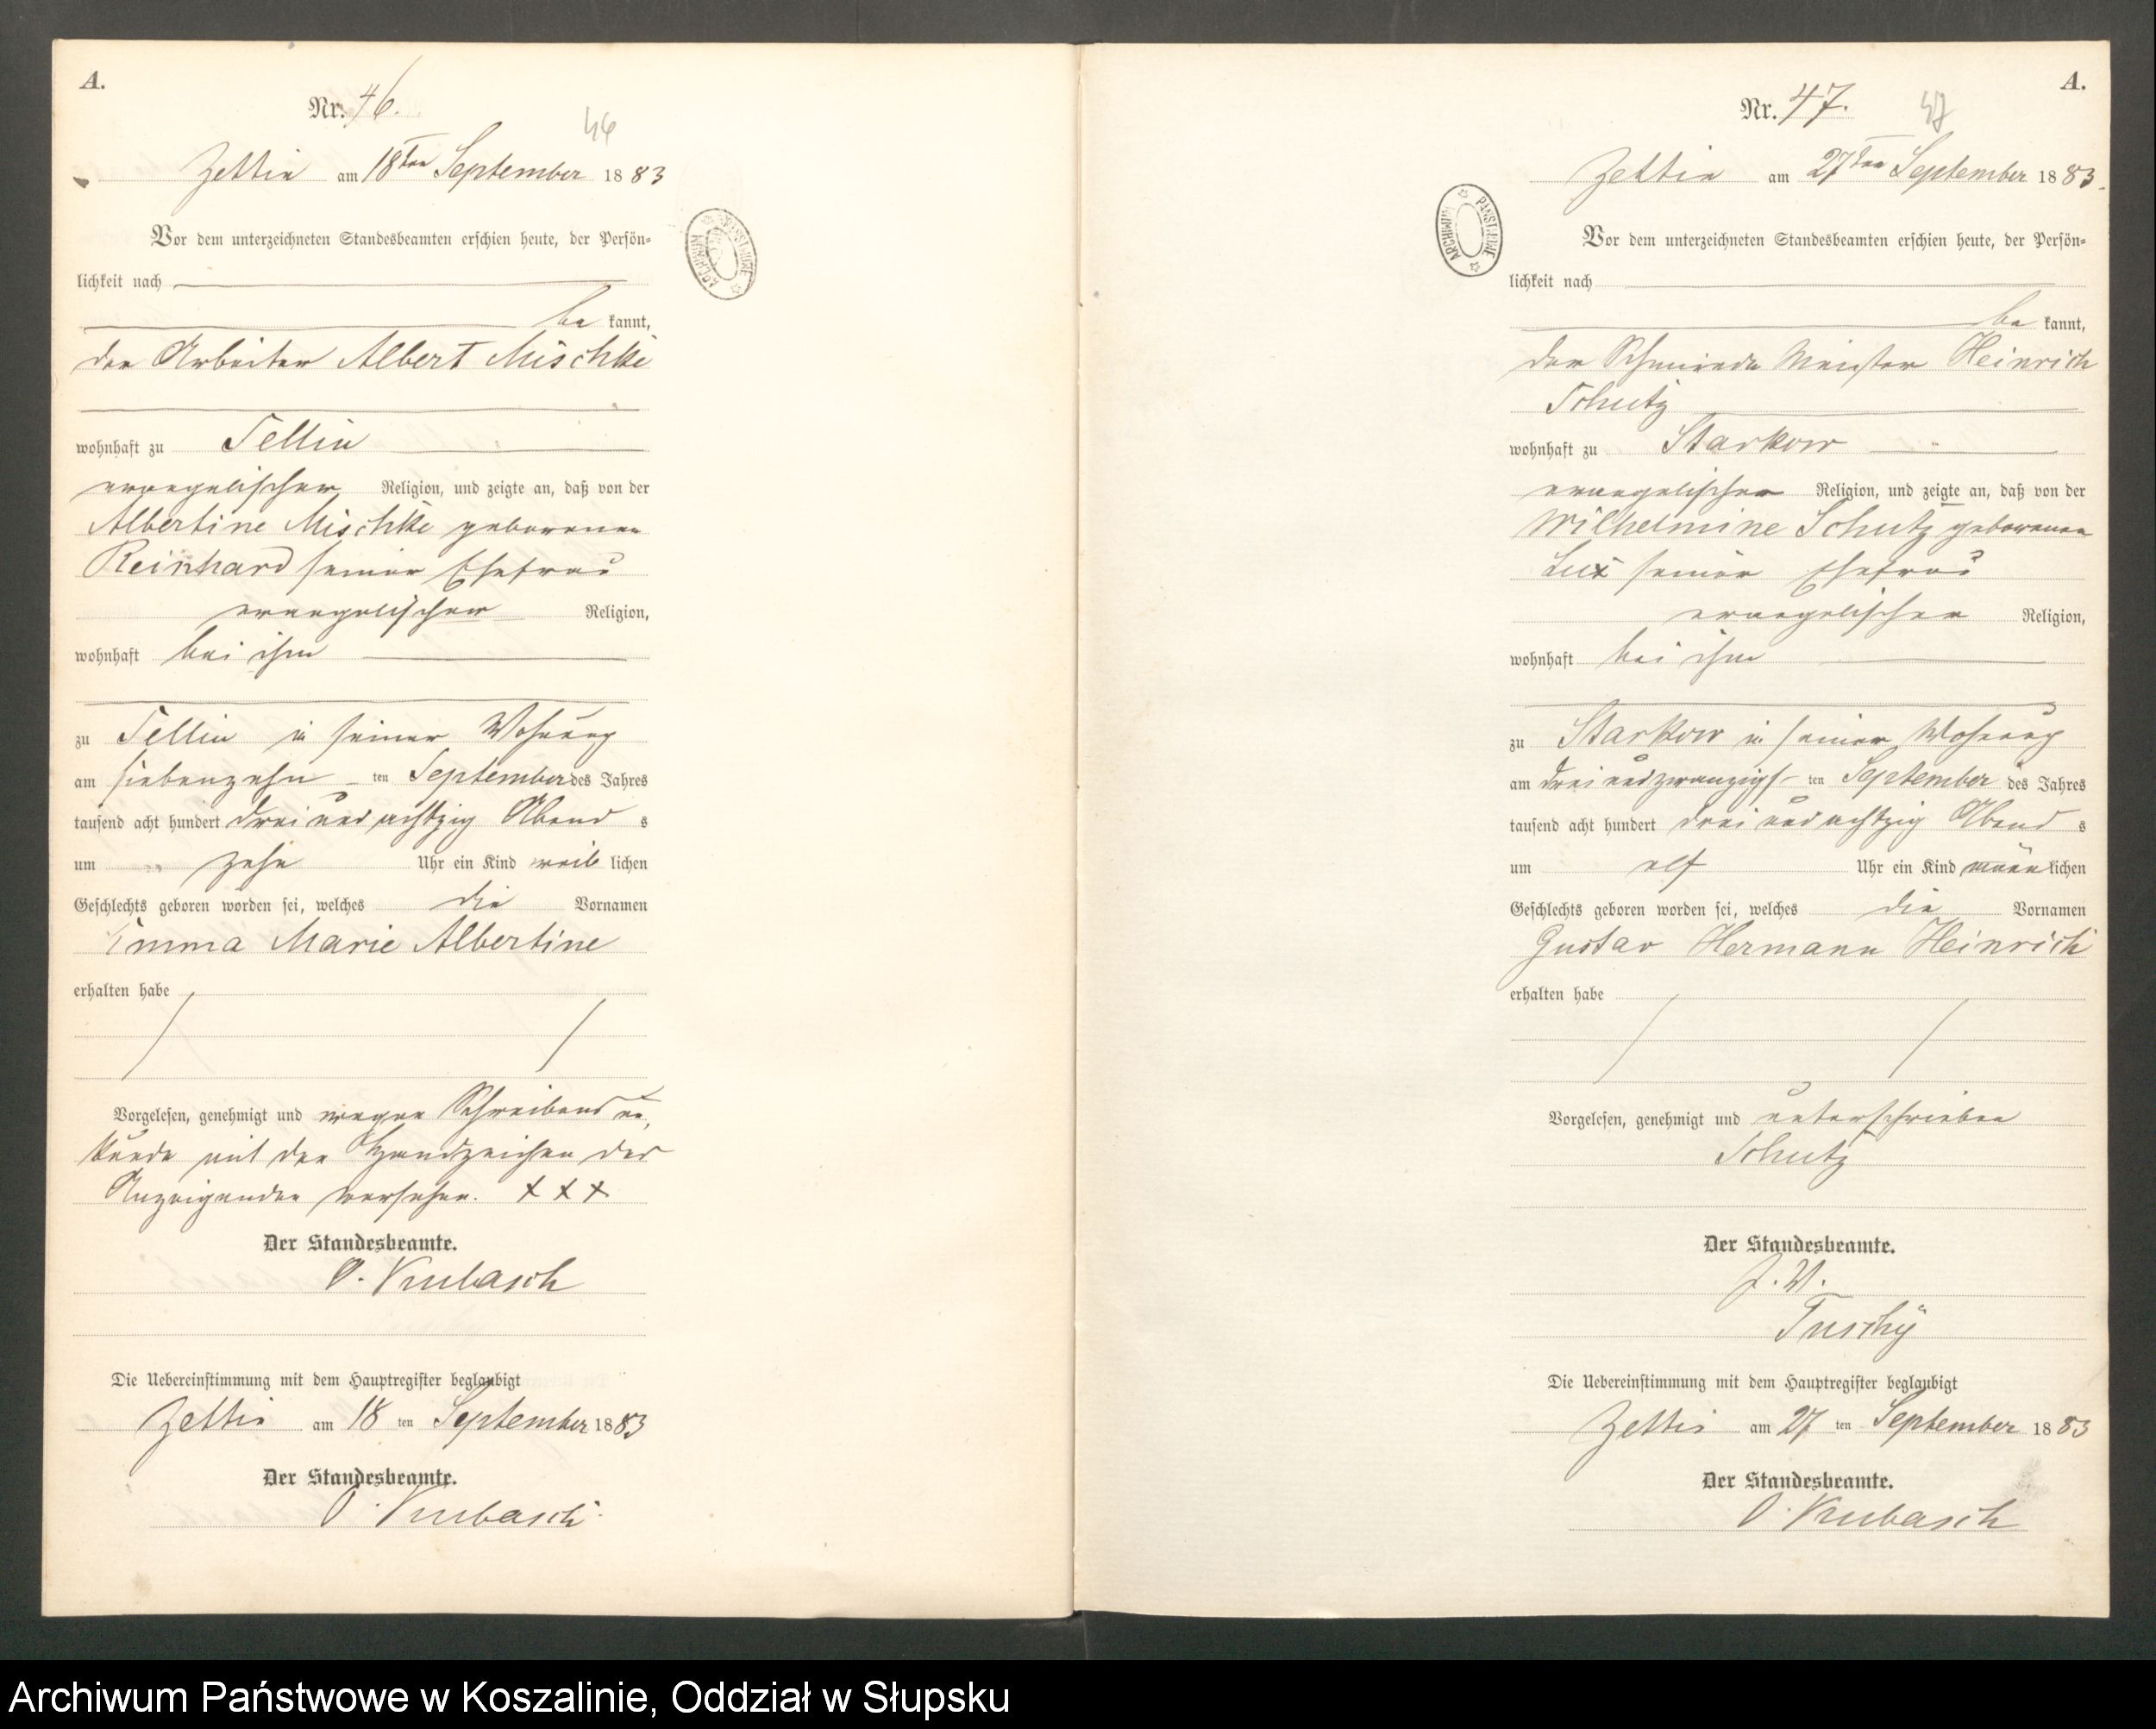 A.
Nr. 46.
46
Zettin am 18ten September 1883
Vor dem unterzeichneten Standesbeamten erschien heute, der Persön-
lichkeit nach
be kannt,
der Arbeiter Albert Mischke
wohnhaft zu Sellin
evangelischer Religion, und zeigte an, daß von der
Albertine Mischke geborenen
Reinhard seiner Ehefrau
evangelischer Religion,
wohnhaft bei ihm
zu Sellin in seiner Wohnung
am siebenzehn ten September des Jahres
tausend acht hundert drei und achtzig Abend s
um zehn Uhr ein Kind weib lichen
Geschlechts geboren worden sei, welches die Vornamen
Emma Marie Albertine
erhalten habe
Vorgelesen, genehmigt und wegen Schreibens un-
kunde mit den Handzeichen des
Anzeigenden versehen. + + +
Der Standesbeamte.
O. Krubasch
Die Uebereinstimmung mit dem Hauptregister beglaubigt
Zettin am 18 ten September 1883
Der Standesbeamte.
O. Krubasch.
A.
Nr. 47.
47
Zettin am 27ten September 1883.
Vor dem unterzeichneten Standesbeamten erschien heute, der Persön-
lichkeit nach
be kannt,
der Schmiede Meister Heinrich
Schutz
wohnhaft zu Starkow
evangelischer Religion, und zeigte an, daß von der
Wilhelmine Schutz geborenen
Lux seiner Ehefrau
evangelischen Religion,
wohnhaft bei ihm
zu Starkow in seiner Wohnung
am drei und zwanzigs- ten September des Jahres
tausend acht hundert drei und achtzig Abend s
um elf Uhr ein Kind männ lichen
Geschlechts geboren worden sei, welches die Vornamen
Gustav Hermann Heinrich
erhalten habe
Vorgelesen, genehmigt und unterschrieben
Schutz
Der Standesbeamte.
J. V.
Tuschÿ
Die Uebereinstimmung mit dem Hauptregister beglaubigt
Zettin am 27 ten September 1883
Der Standesbeamte.
O. Krubasch
ARCHIWUM PAŃSTWOWE
Archiwum Państwowe w Koszalinie, Oddział w Słupsku